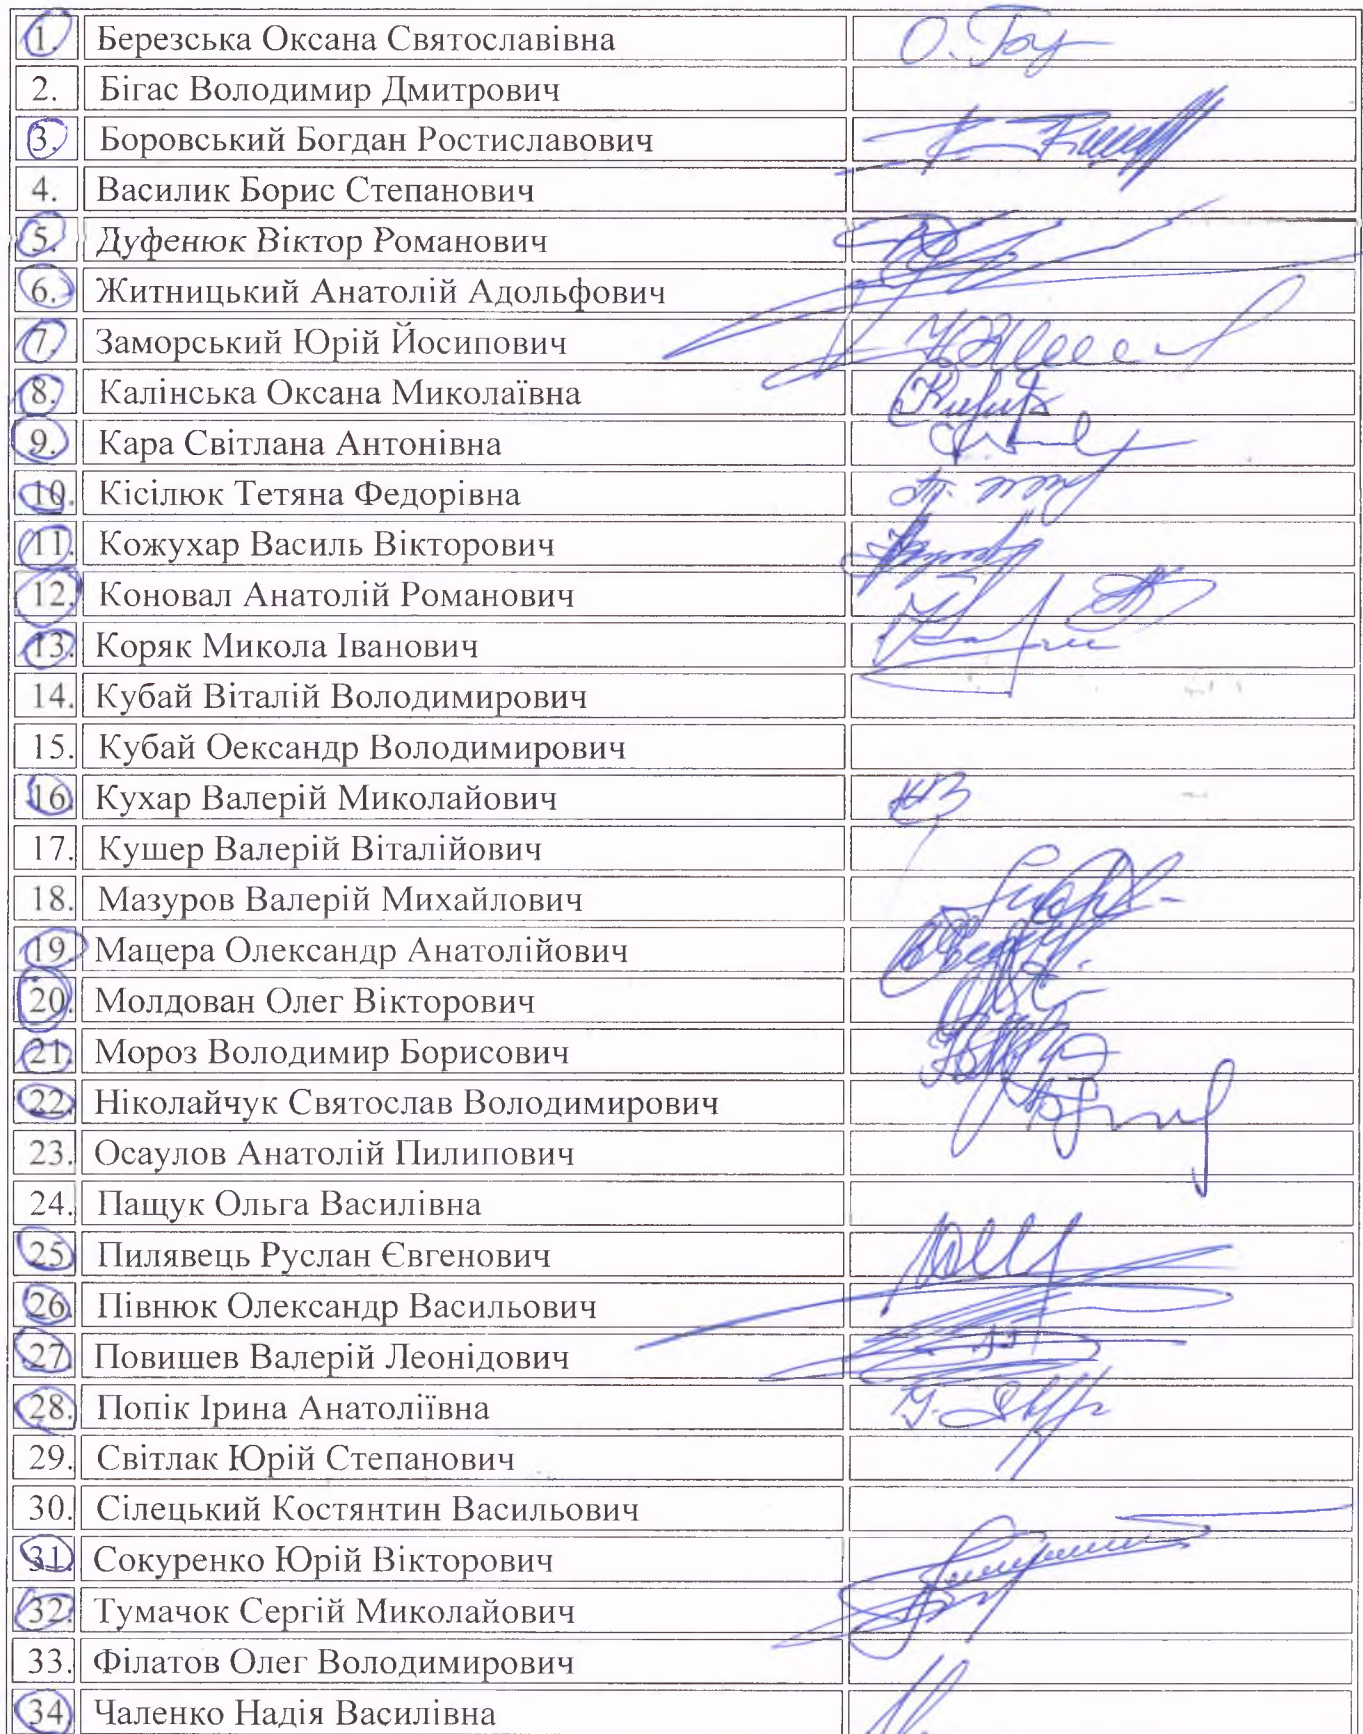 1. Березська Оксана Святославівна
2. Бігас Володимир Дмитрович
3. Боровський Богдан Ростиславович
4. Василик Борис Степанович
5. Дуфенюк Віктор Романович
6. Житницький Анатолій Адольфович
7. Заморський Юрій Йосипович
8. Калінська Оксана Миколаївна
9. Кара Світлана Антонівна
10. Кісілюк Тетяна Федорівна
11. Кожухар Василь Вікторович
12. Коновал Анатолій Романович
13. Коряк Микола Іванович
14. Кубай Віталій Володимирович
15. Кубай Оександр Володимирович
16. Кухар Валерій Миколайович
17. Кушер Валерій Віталійович
18. Мазуров Валерій Михайлович
19. Мацера Олександр Анатолійович
20. Молдован Олег Вікторович
21. Мороз Володимир Борисович
22. Ніколайчук Святослав Володимирович
23. Осаулов Анатолій Пилипович
24. Пащук Ольга Василівна
25. Пилявець Руслан Євгенович
26. Півнюк Олександр Васильович
27. Повишев Валерій Леонідович
28. Попік Ірина Анатоліївна
29. Світлак Юрій Степанович
30. Сілецький Костянтин Васильович
31. Сокуренко Юрій Вікторович
32. Тумачок Сергій Миколайович
33. Філатов Олег Володимирович
34. Чаленко Надія Василівна